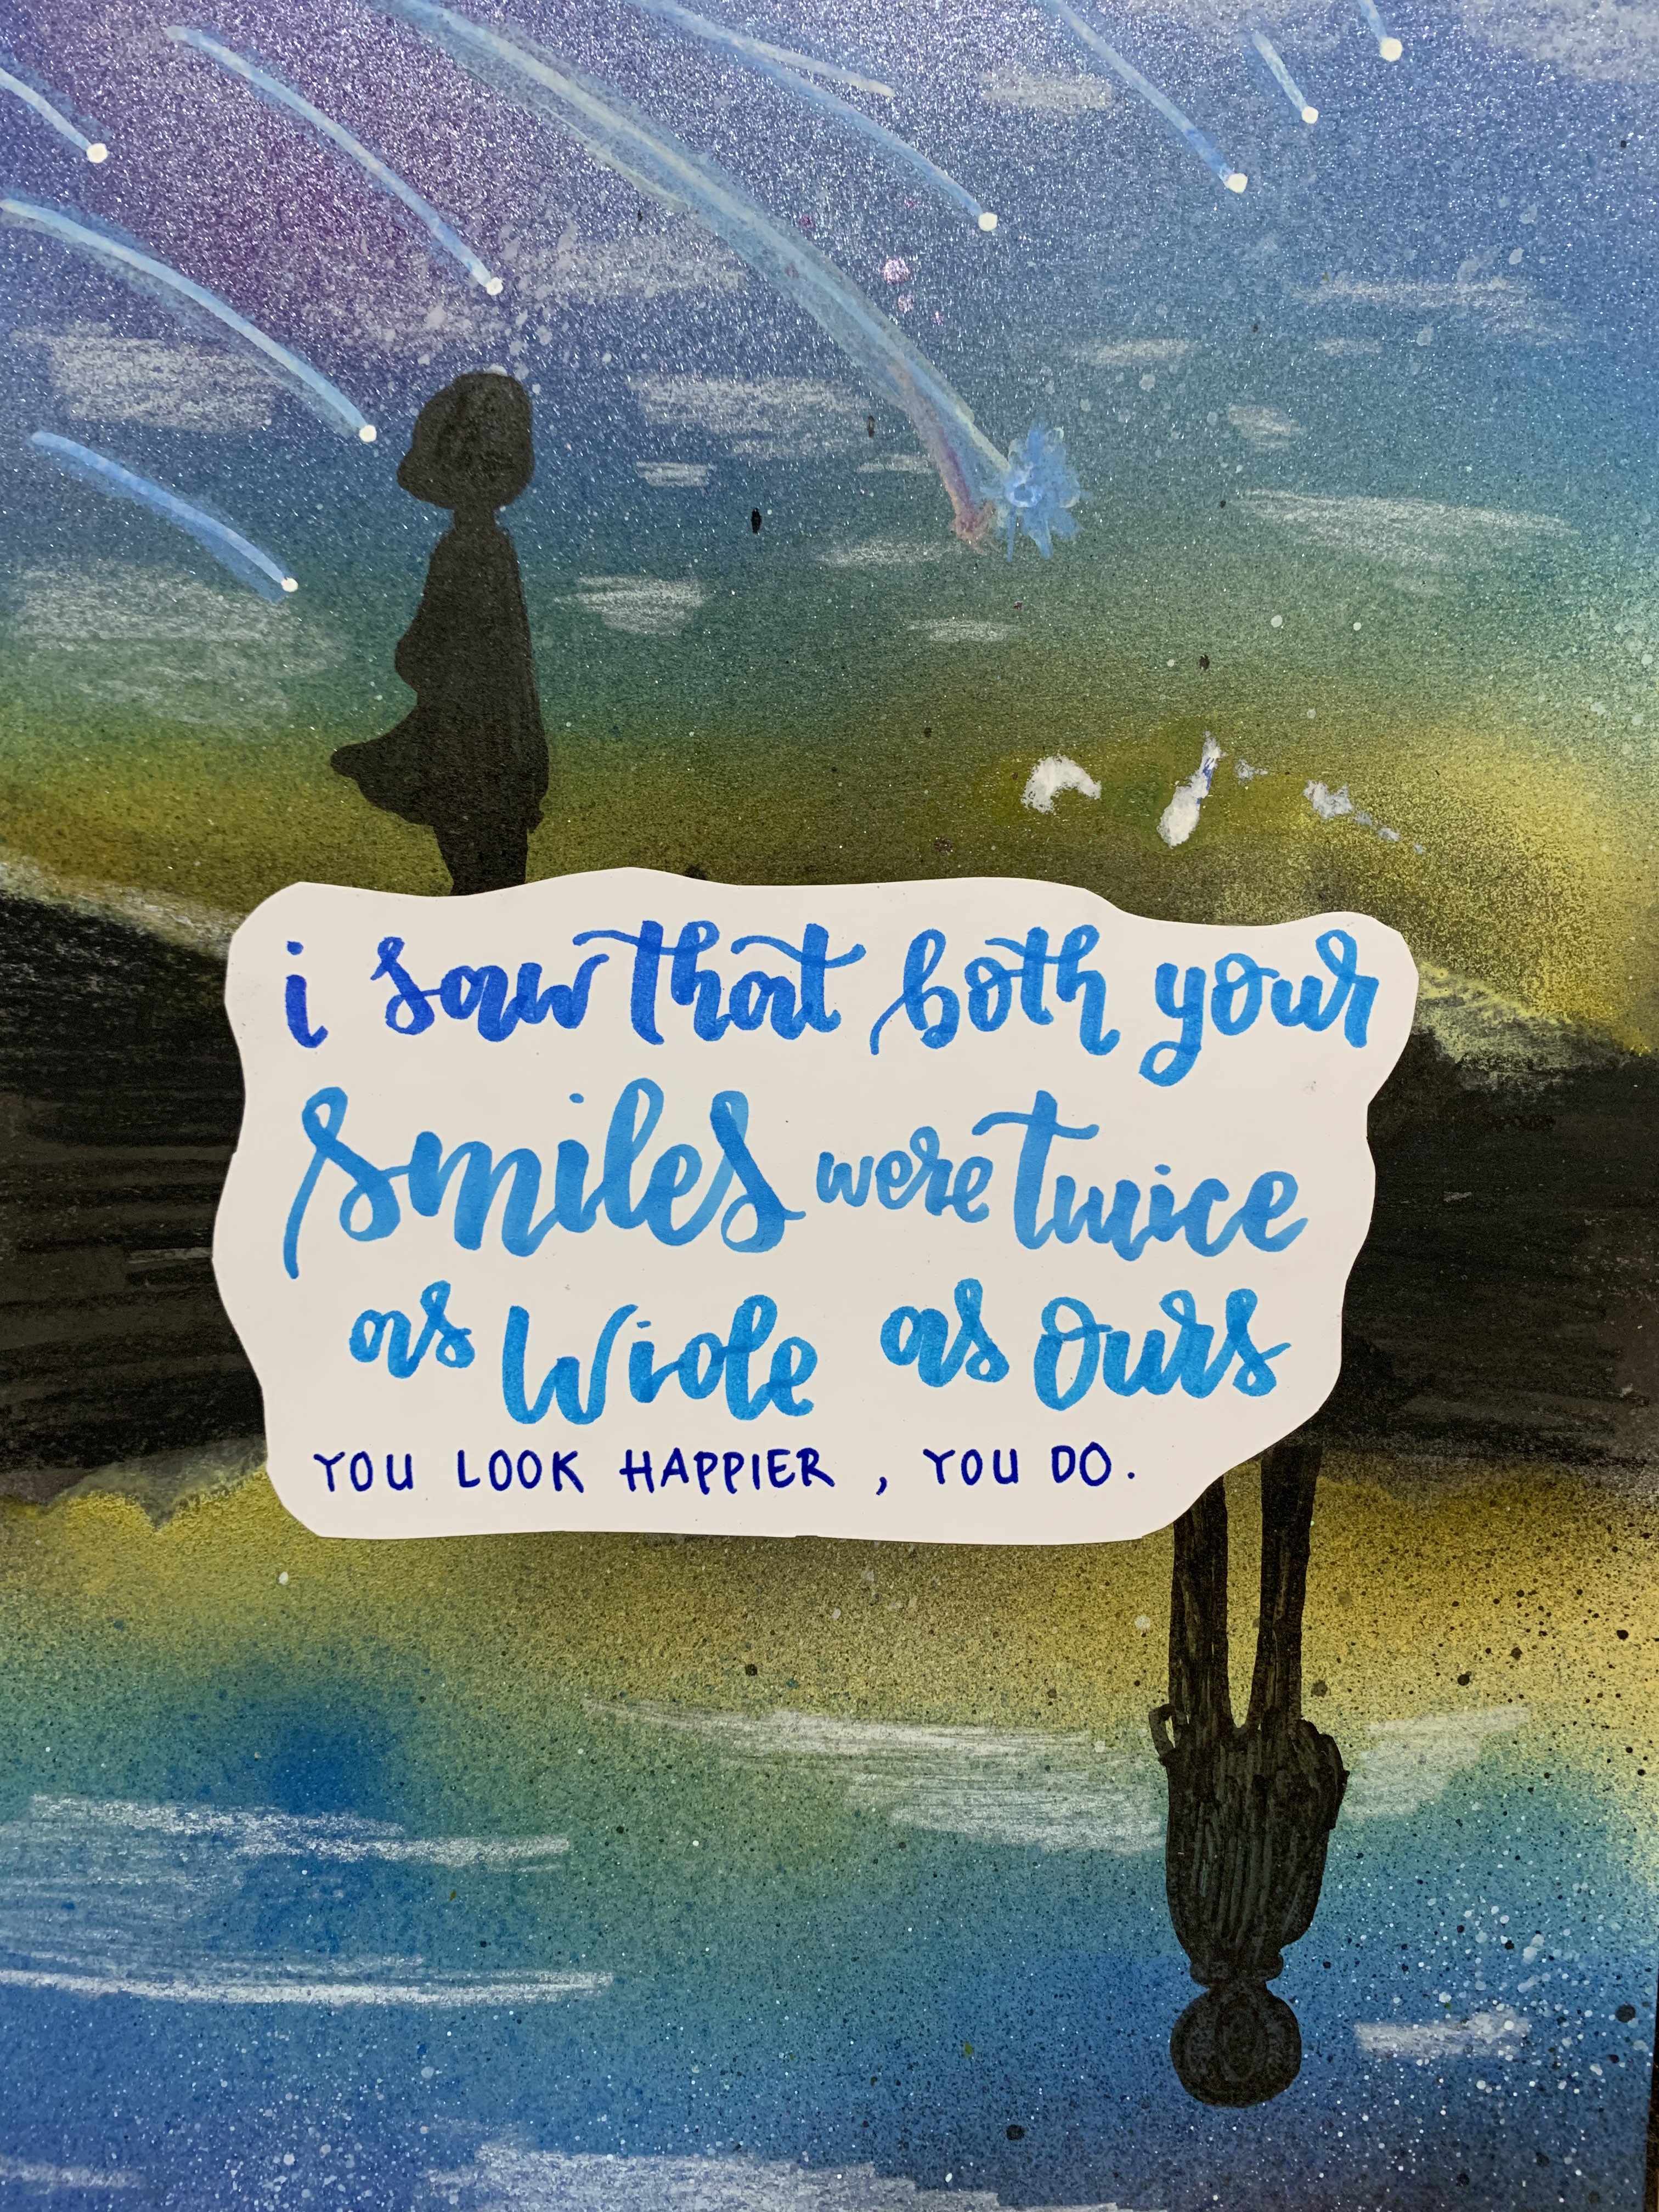 i saw that both your
smiles were twice
as wide as ours
YOU LOOK HAPPIER , YOU DO.